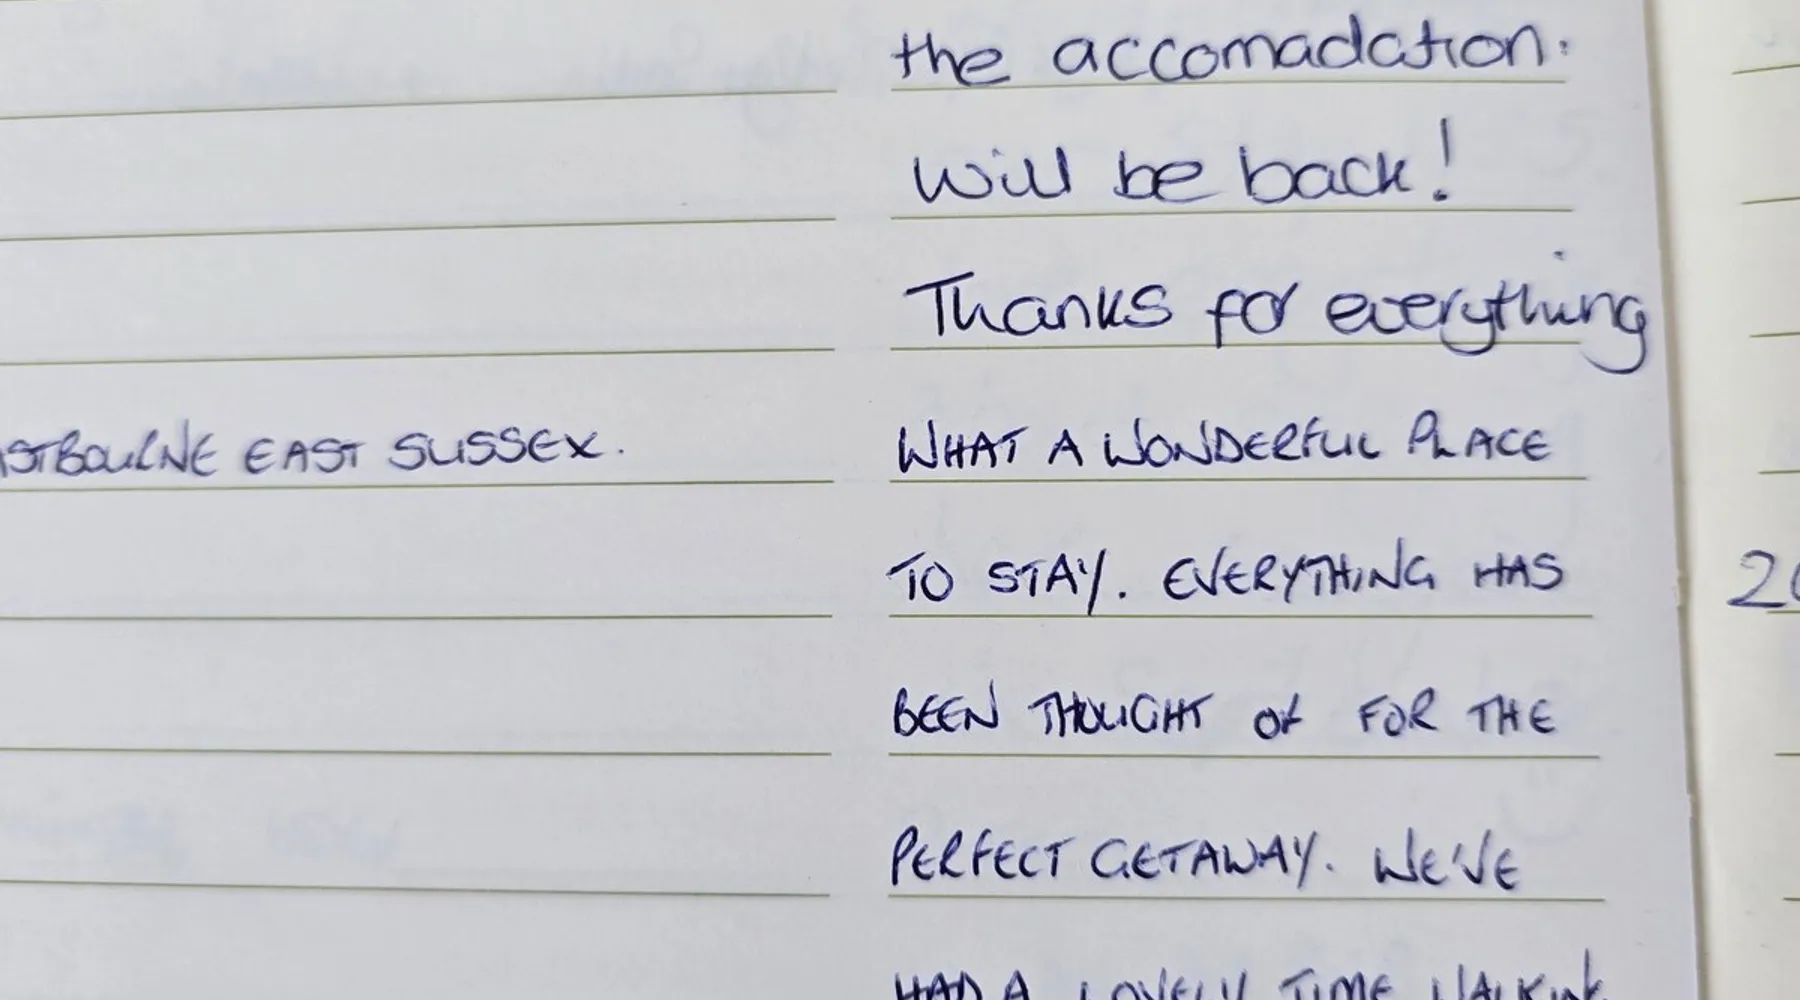 the accomadation.
will be back!
Thanks for everything
ASTBOURNE EAST SUSSEX.
WHAT A WONDERFUL PLACE
TO STAY. EVERYTHING HAS
BEEN THOUGHT Of FOR THE
PERFECT GETAWAY. WE'VE
HAD A LOVELY TIME WALKING